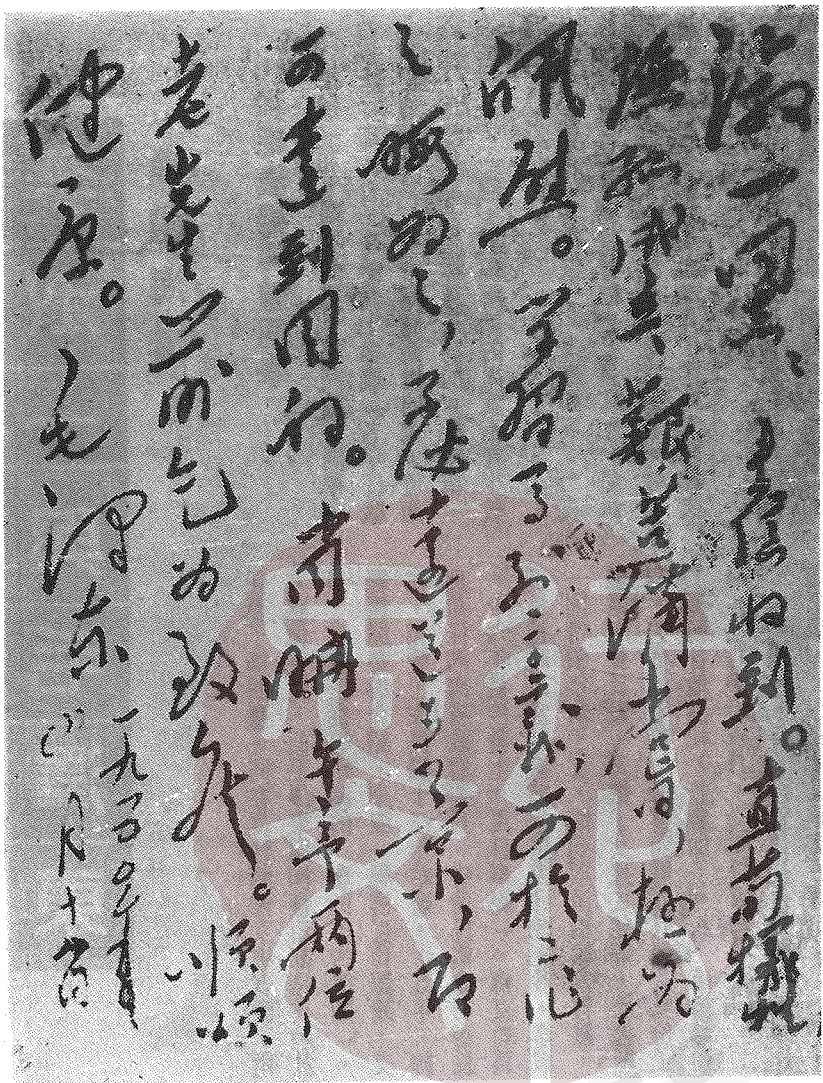 淑一同志、来信收到。直荀犧牲
撫孤成立艱苦備嘗，極为
佩慰。学習马列主義，可於工作
之暇为之，不必远道来京，即
可達到目的。肖聃午亭两位
老先生前乞为致候。顺颂
健康。毛泽东
一九五〇年
四月十八日
行思文化